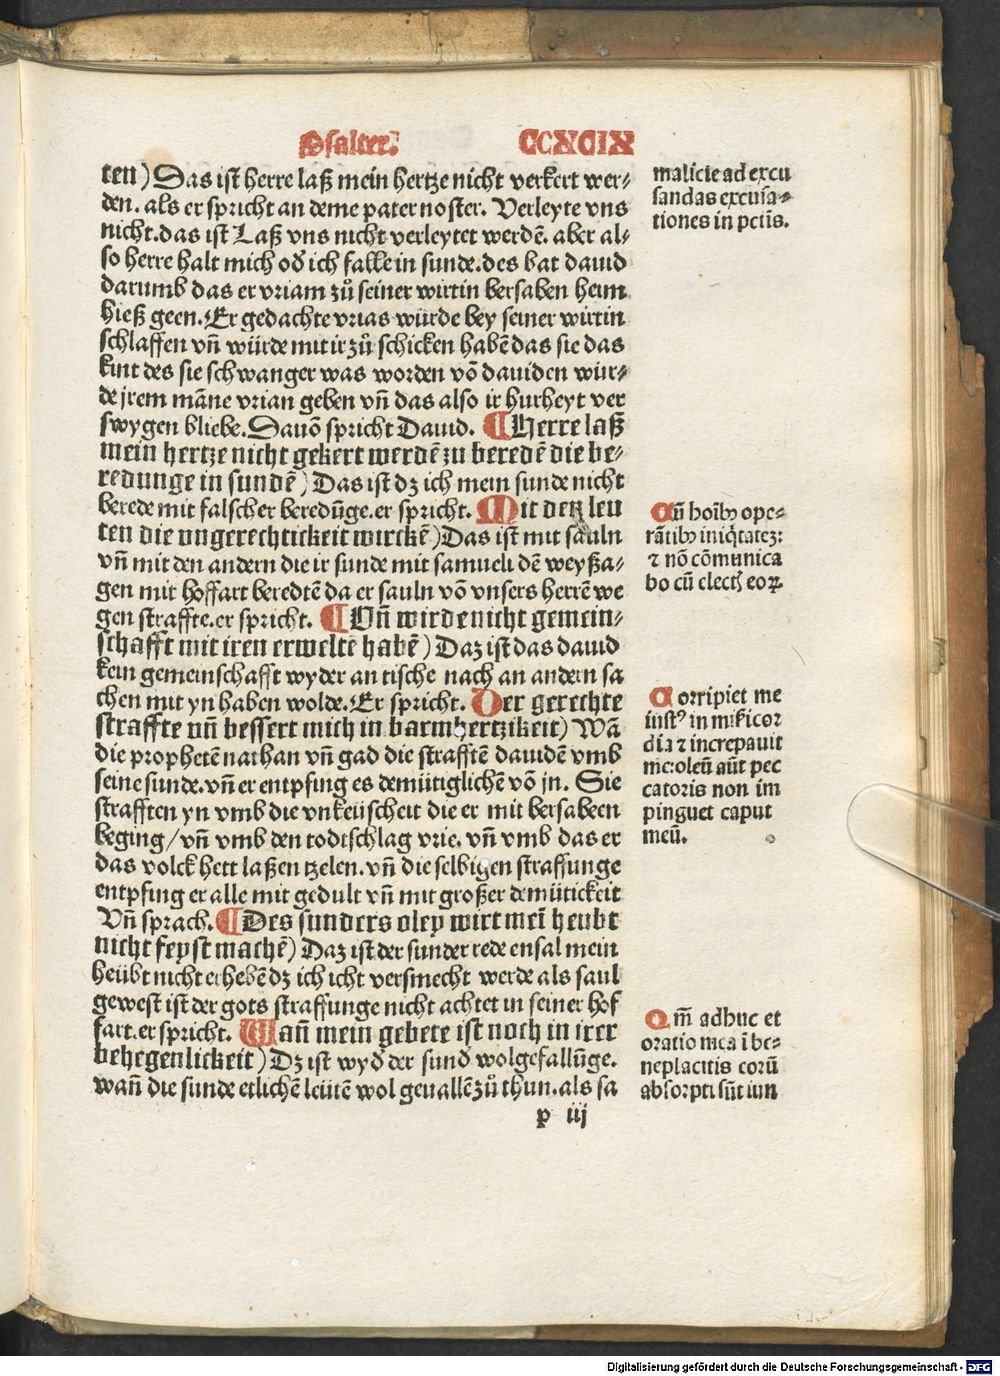 Psalter. CCXCIX
ten) Das ist herre laß mein hertze nicht verkert wer⸗
den. als er spricht an deme pater noster. Verleyte vns
nicht. das ist Laß vns nicht verleytet werdẽ. aber al⸗
so herre halt mich od̕ ich falle in sunde. des bat dauid
darumb das er vriam zů seiner wirtin bersaben heim
hieß geen. Er gedachte vrias würde bey seiner wirtin
schlaffen vñ würde mit ir zů schicken habẽ das sie das
kint des sie schwanger was worden võ dauiden wür⸗
de jrem mãne vrian geben vñ das also ir hurheyt ver
swygen bliebe. Dauõ spricht Dauid. ¶ Herre laß
mein hertze nicht gekert werdẽ zu beredẽ die be⸗
redunge in sundẽ) Das ist dz ich mein sunde nicht
berede mit falscher beredũge. er spricht. Mit den leu
ten die vngerechtickeit wirckẽ) Das ist mit sauln
vñ mit den andern die ir sunde mit samueli dẽ weyßa⸗
gen mit hoffart beredtẽ da er sauln võ vnsers herrẽ we
gen straffte. er spricht. ¶ Vñ wirde nicht gemein⸗
schafft mit iren erweltẽ habẽ) Daz ist das dauid
kein gemeinschafft wyder an tische nach an andern sa
chen mit yn haben wolde. Er spricht. Der gerechte
straffte vñ bessert mich in barmhertzikeit) Wã
die prophetẽ nathan vñ gad die strafftẽ dauidẽ vmb
seine sunde. vñ er entpfing es demütiglichẽ võ jn. Sie
strafften yn vmb die vnkeüscheit die er mit bersabeen
beging / vñ vmb den todtschlag vrie. vñ vmb das er
das volck hett laßen tzelen. vñ die selbigen straffunge
entpfing er alle mit gedult vñ mit großer demütickeit
Vñ sprach. ¶ Des sunders oley wirt meĩ heubt
nicht feyst machẽ) Daz ist der sunder rede ensal mein
heübt nicht erhebẽ dz ich icht versmecht werde als saul
gewest ist der gots straffunge nicht achtet in seiner hof
fart. er spricht. Wañ mein gebete ist noch in irer
behegenlickeit) Dz ist wyd̕ der sund̕ wolgefallũge.
wañ die sunde etlichẽ leütẽ wol geuallẽ zů thun. als sa
p iij
malicie ad excu
sandas excusa⸗
tiones in pctĩs.
Cũ hoĩbꝫ ope⸗
rãtibꝫ iniq̃tatez:
⁊ nõ cõmunica
bo cũ electꝭ eoꝝ
Corripiet me
iust⁹ in mĩsericor
dia ⁊ increpauit
me: oleũ aũt pec
catoris non im
pinguet caput
meũ.
Qm̃ adhuc et
oratio mea ĩ be⸗
neplacitis eorũ
absorpti sũt iun
Digitalisierung gefördert durch die Deutsche Forschungsgemeinschaft - DFG